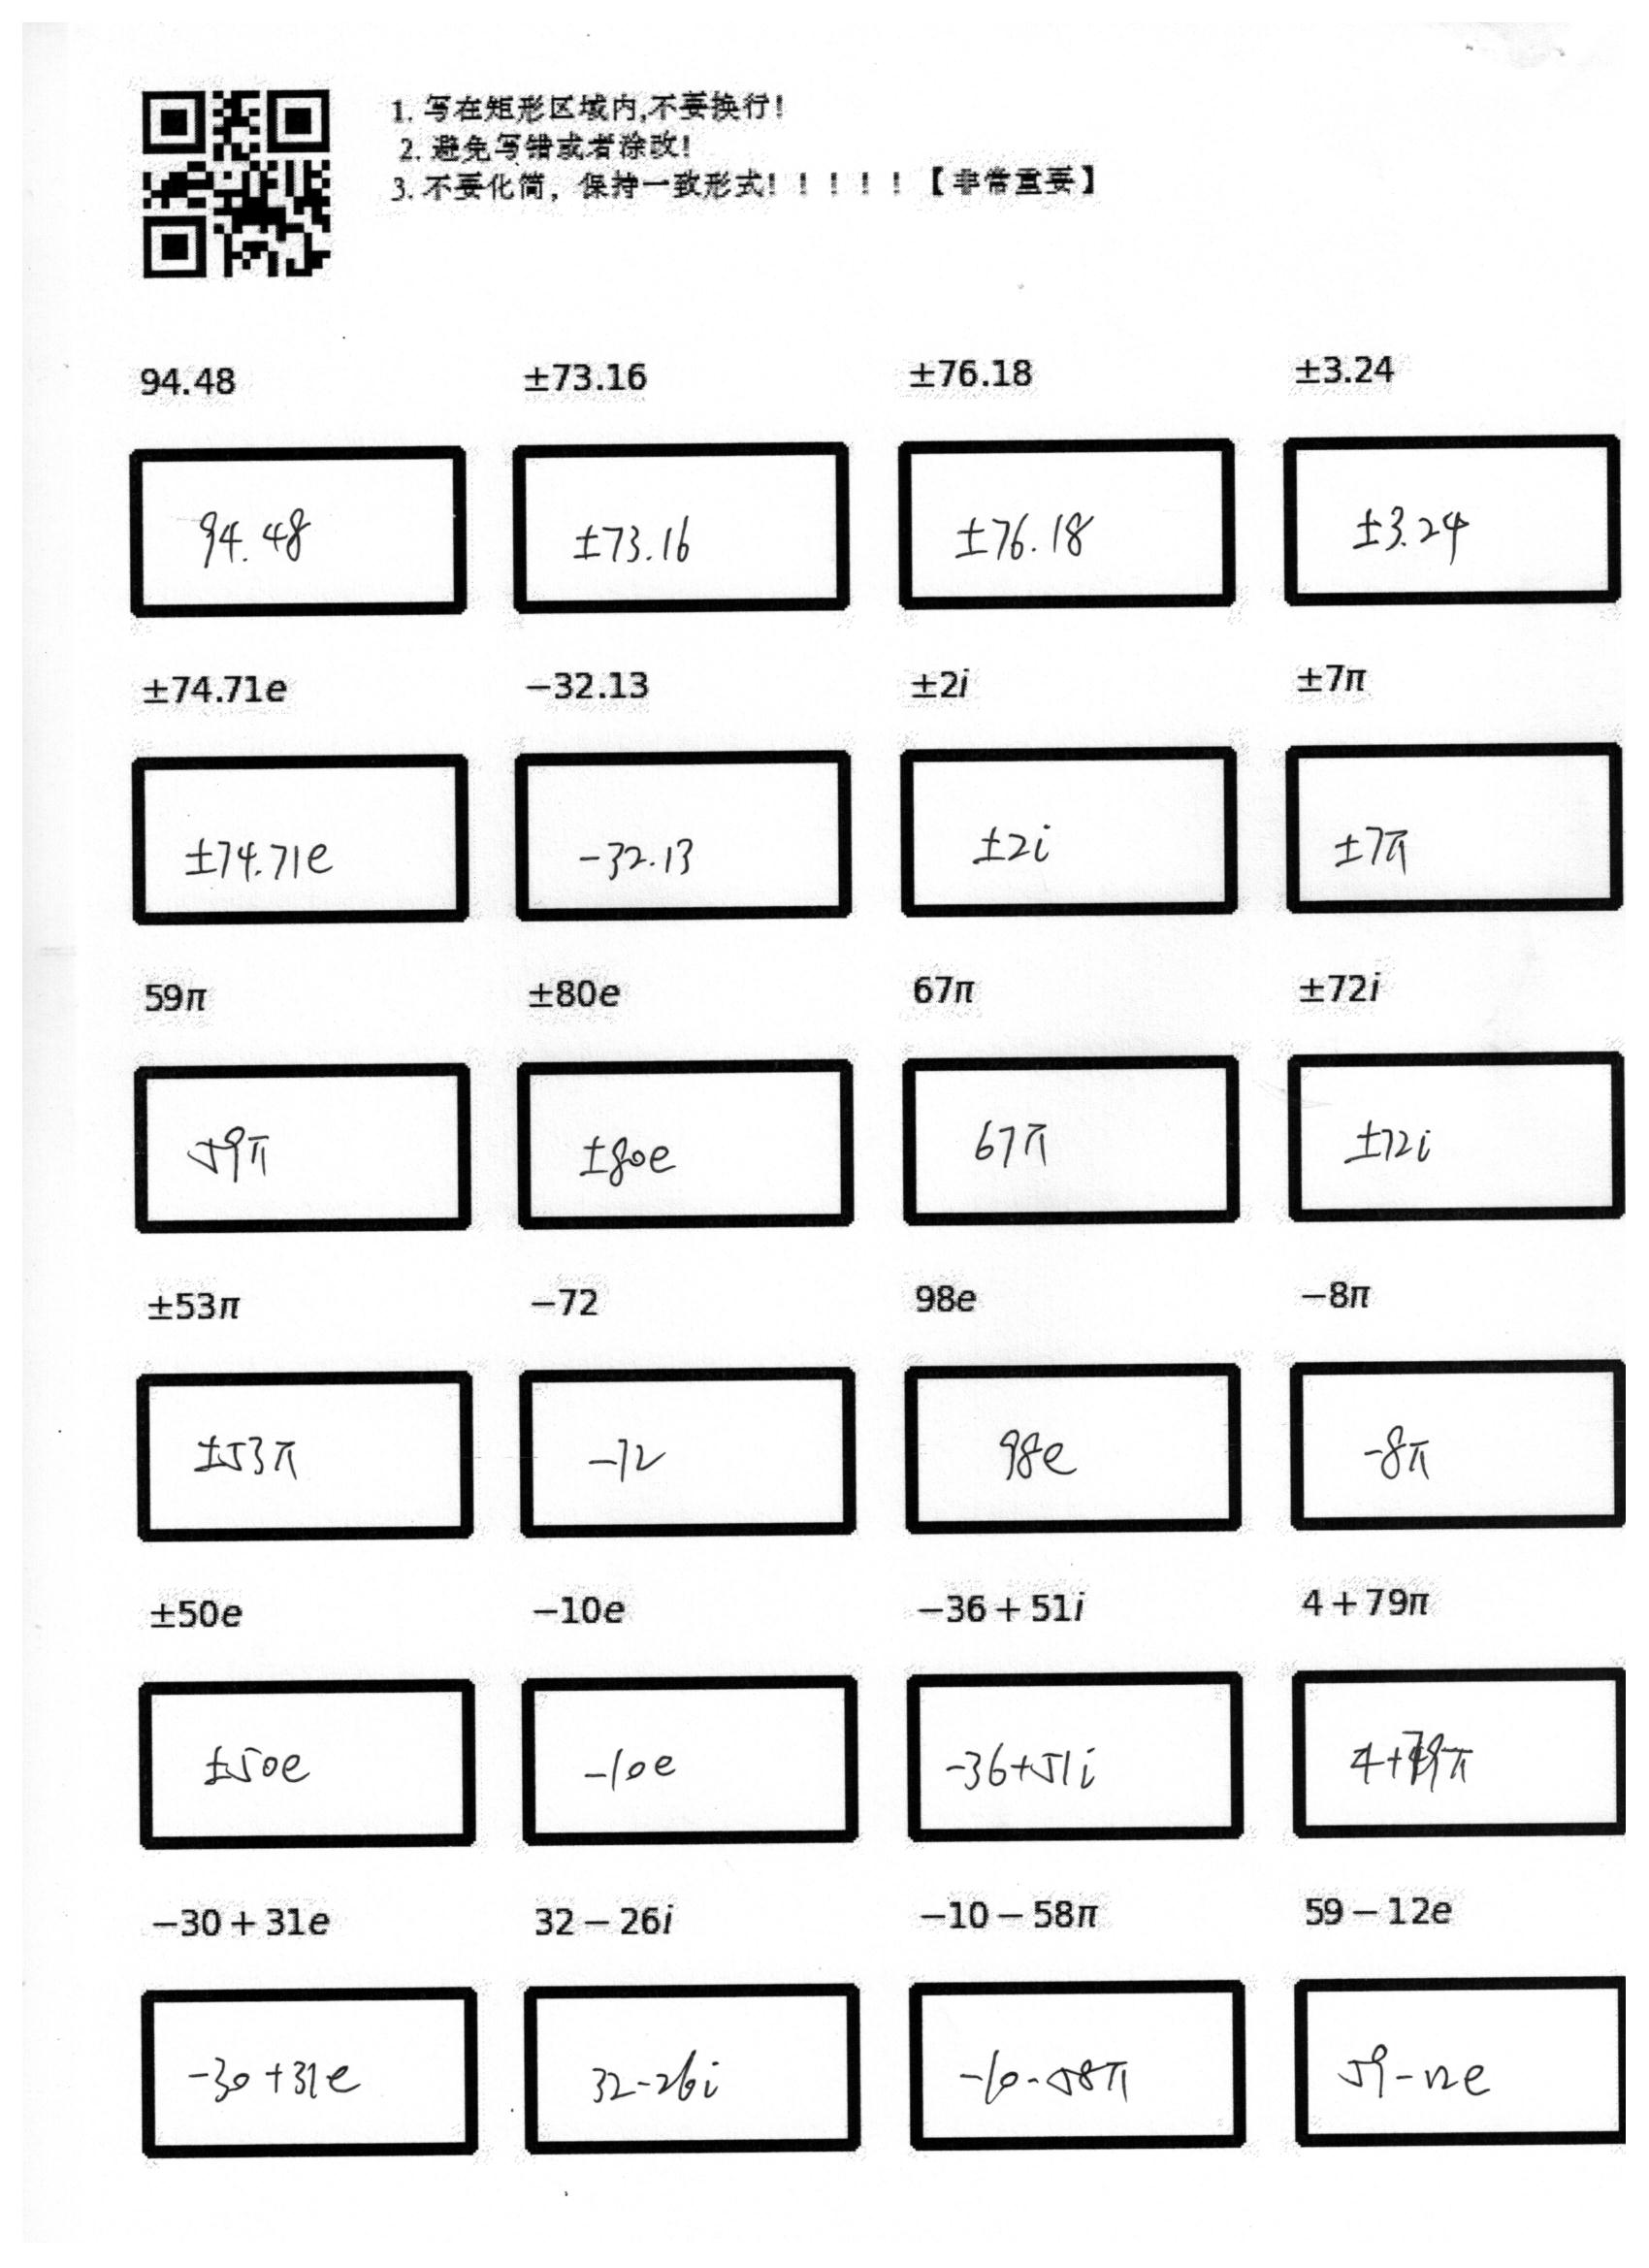 1. 写在矩形区域内,不要换行!
2. 避免写错或者涂改!
3. 不要化简，保持一致形式! ! ! ! ! 【非常重要】
94.48 ±73.16 ±76.18 ±3.24
94.48 ±73.16 ±76.18 ±3.24
±74.71e −32.13 ±2i ±7π
±74.71e -32.13 ±2i ±7π
59π ±80e 67π ±72i
59π ±80e 67π ±72i
±53π −72 98e −8π
±53π -72 98e -8π
±50e −10e −36 + 51i 4 + 79π
±50e -10e -36+51i 4+79π
−30 + 31e 32 − 26i −10 − 58π 59 − 12e
-30+31e 32-26i -10-58π 59-12e